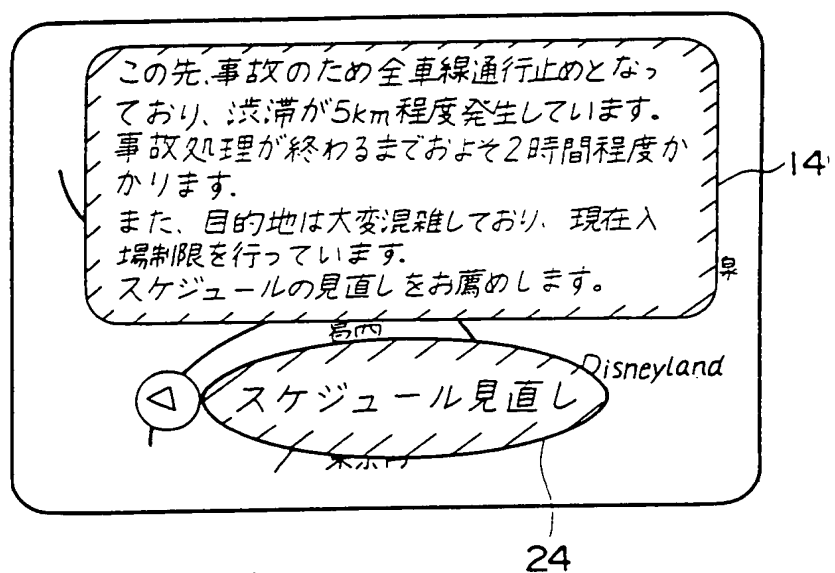 この先、事故のため全車線通行止めとなっ
ており、渋滞が5km程度発生しています。
事故処理が終わるまでおよそ2時間程度か
かります.
また、目的地は大変混雑しており、現在入
場制限を行っています.
スケジュールの見直しをお薦めします。
14'
葛西
Disneyland
スケジュール見直し
24